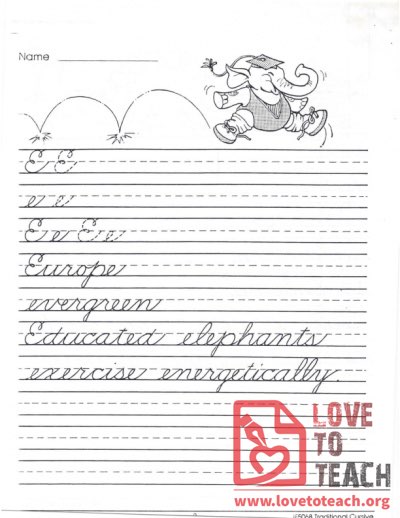 Name
E E
e e
E e E e
Europe
evergreen
Educated elephants
exercise energetically.
LOVE
TO
TEACH
www.lovetoteach.org
Traditional Cursive